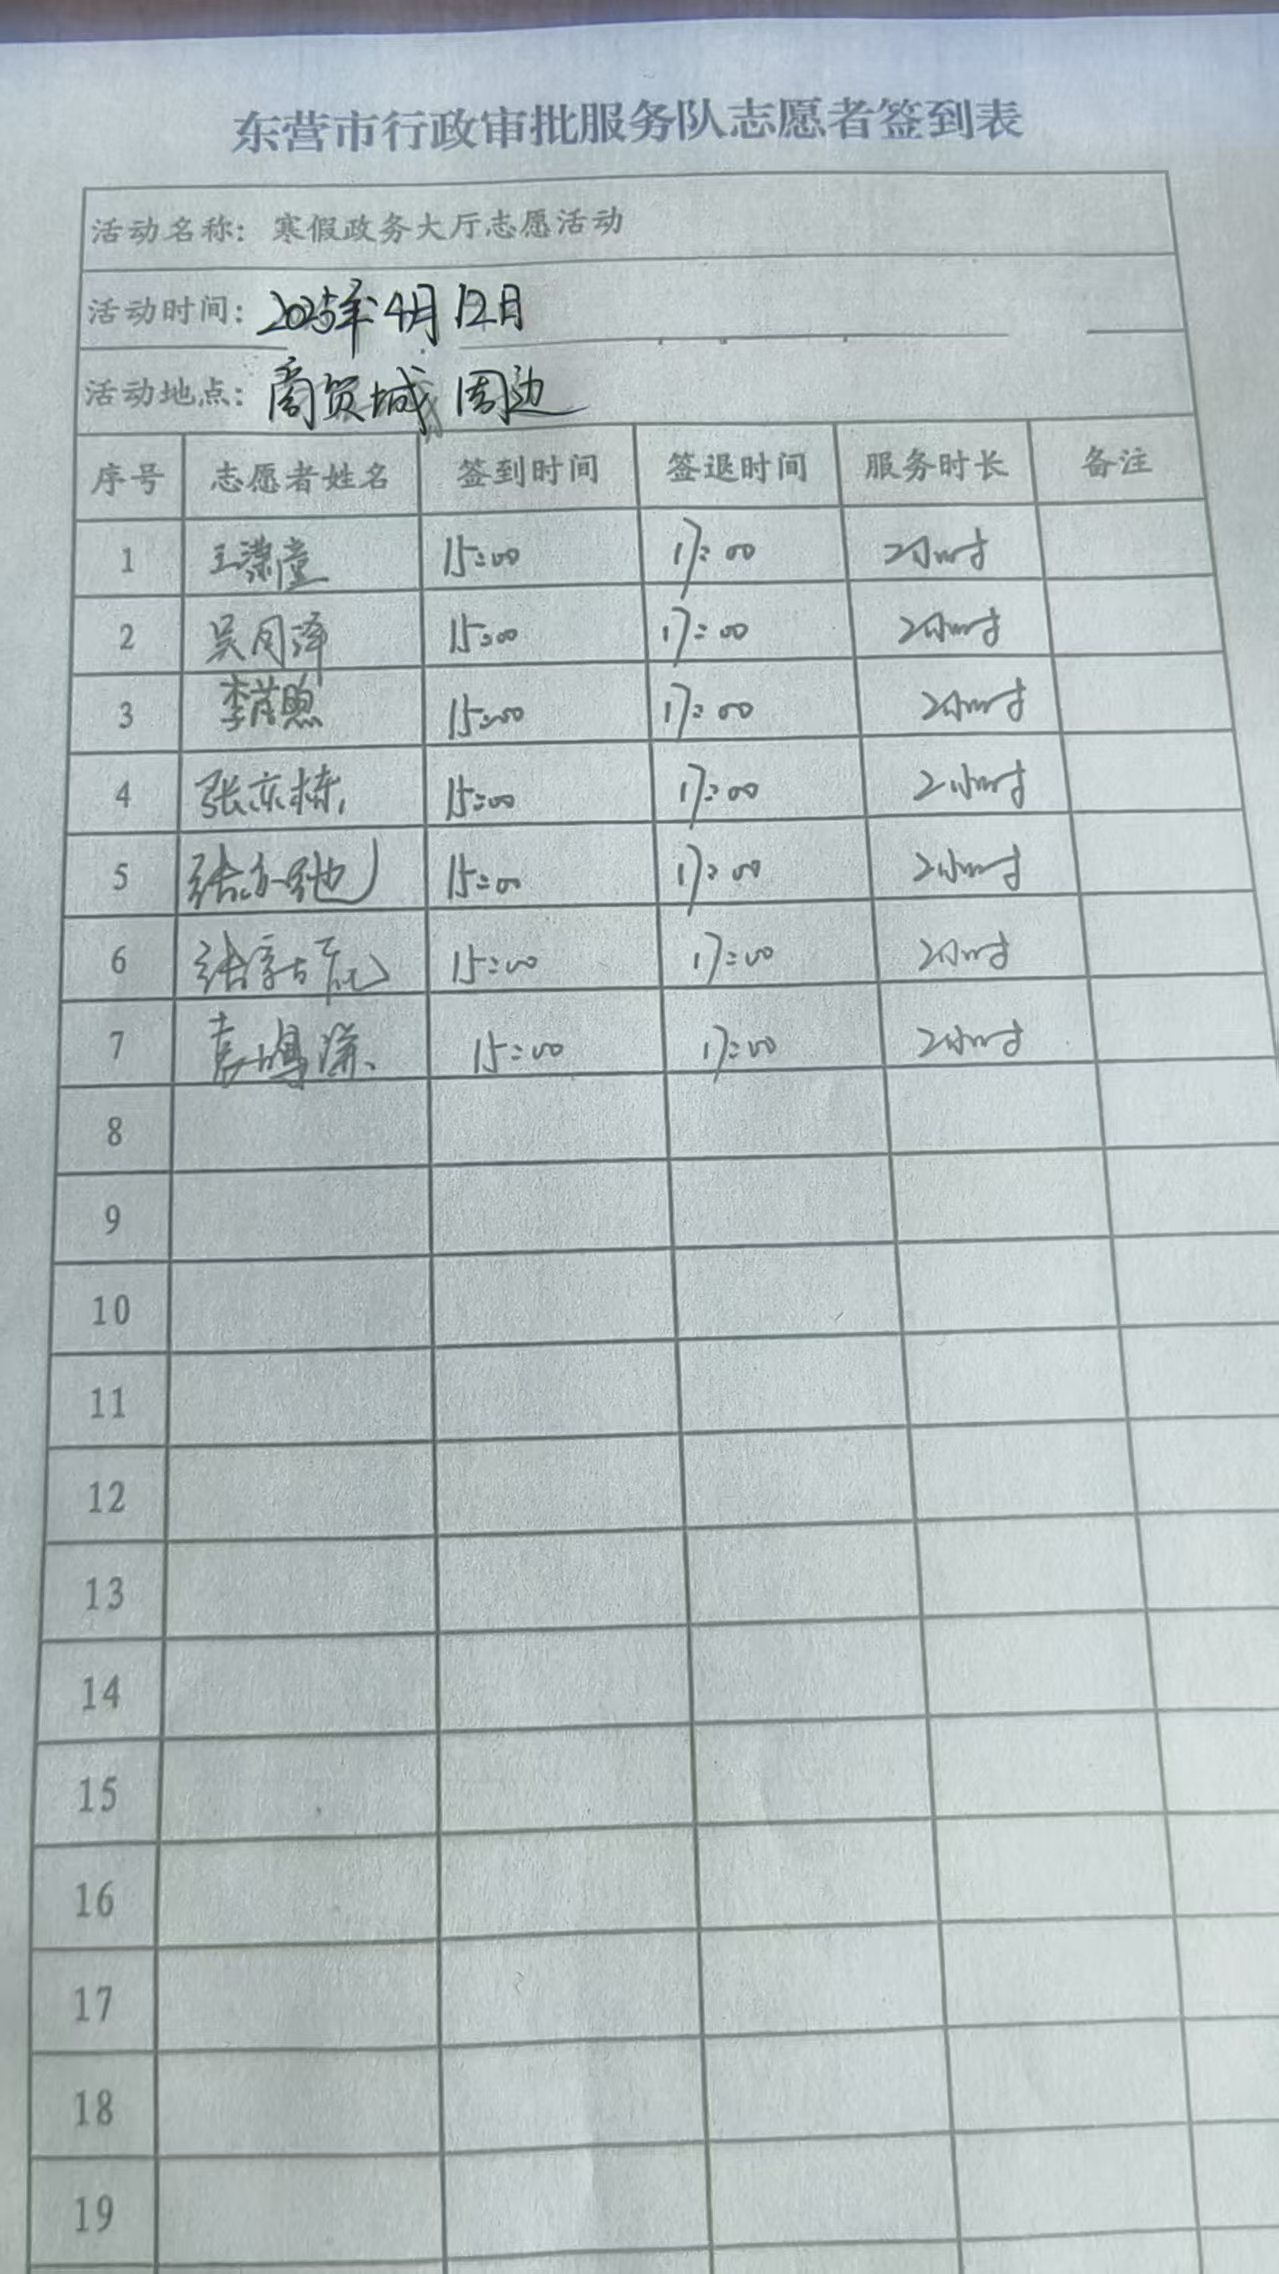 东营市行政审批服务队志愿者签到表
活动名称：寒假政务大厅志愿活动
活动时间：2025年4月12日
活动地点：商贸城周边
序号 志愿者姓名 签到时间 签退时间 服务时长 备注
1 王潇童 15:00 17:00 2小时
2 吴同泽 15:00 17:00 2小时
3 15:00 17:00 2小时
4 张东栋 15:00 17:00 2小时
5 15:00 17:00 2小时
6 15:00 17:00 2小时
7 袁鸣谦 15:00 17:00 2小时
8
9
10
11
12
13
14
15
16
17
18
19